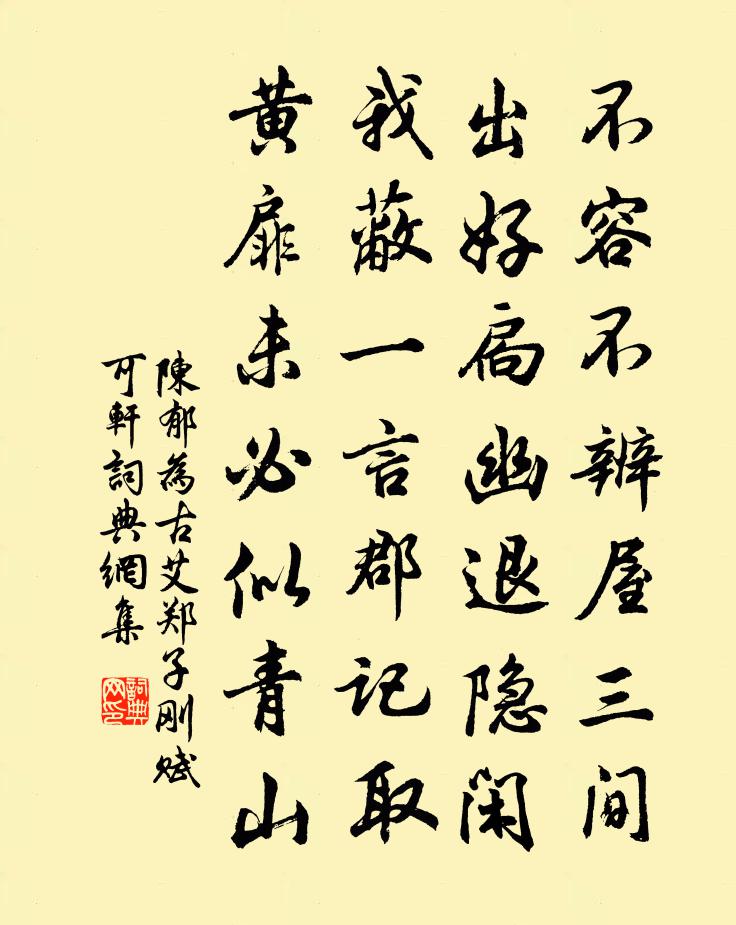 不容不辨屋三间
出好扃幽退隐闲
我蔽一言郡记取
黄扉未必似青山
陳郁為古艾郑子刚赋
可軒詞典網集
詞典网印